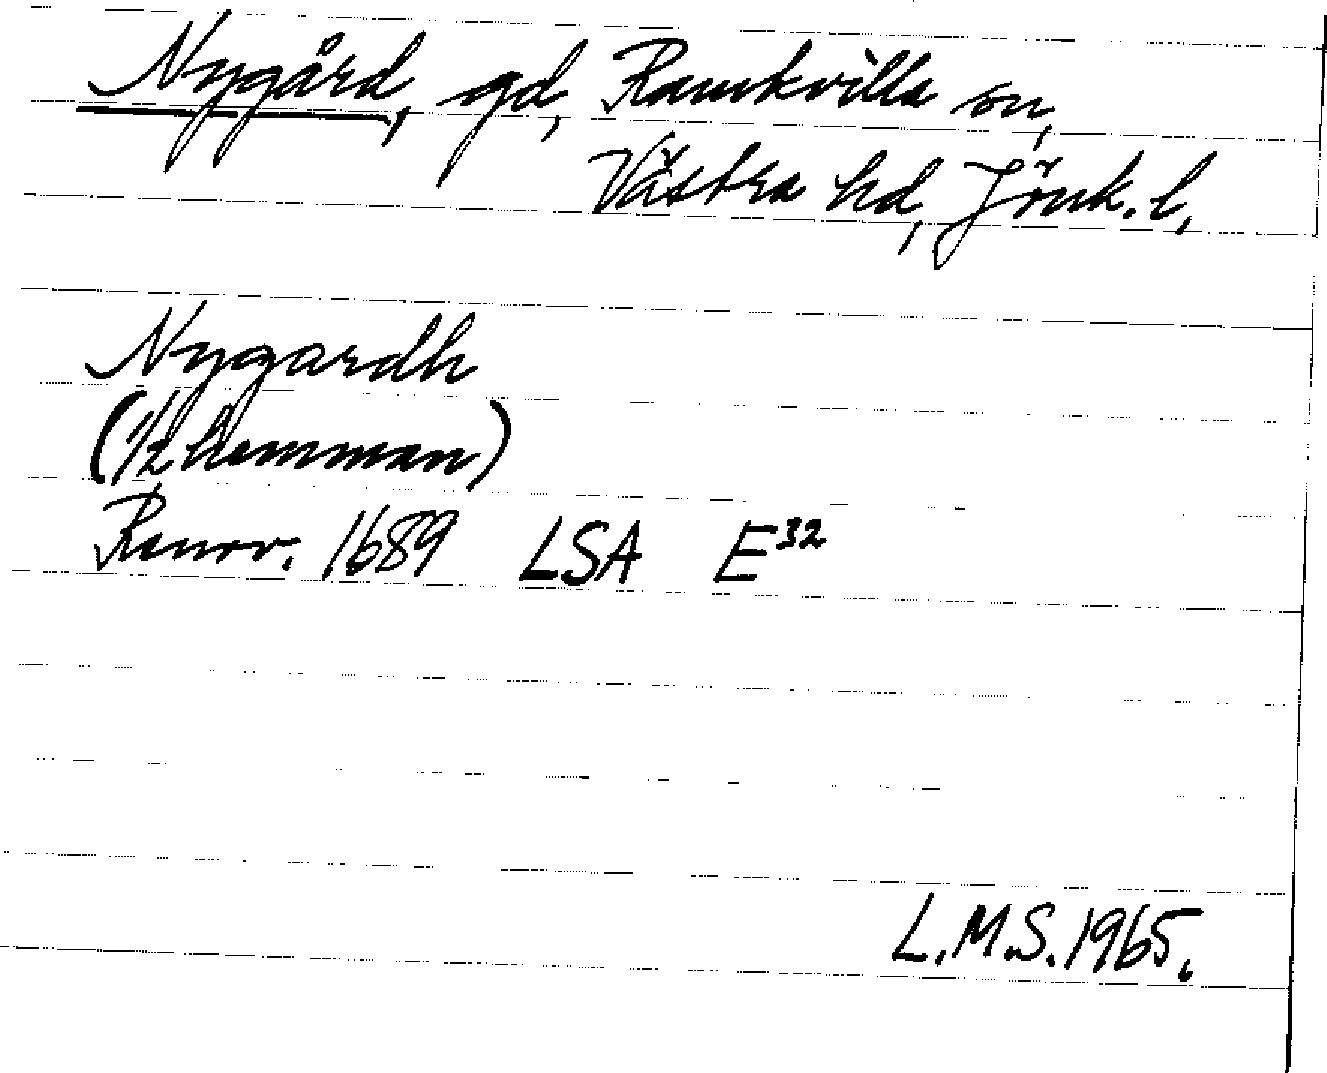 Nygård, gd, Ramkvilla sn,
Västra hd, Jönk. l,
Nygardh
(1/2 hemman)
Renov. 1689 LSA E32
L.M.S. 1965.